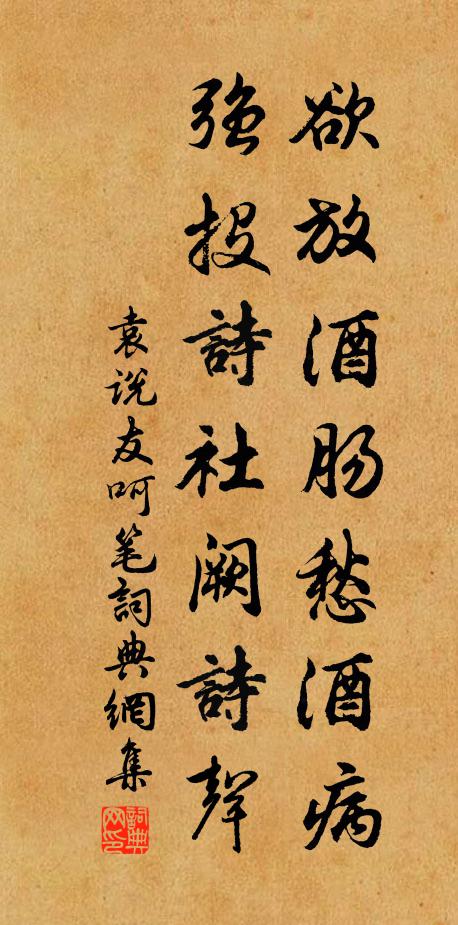 欲放酒肠愁酒病
强投詩社阙詩聲
袁说友呵笔詞典網集
詞典
网印